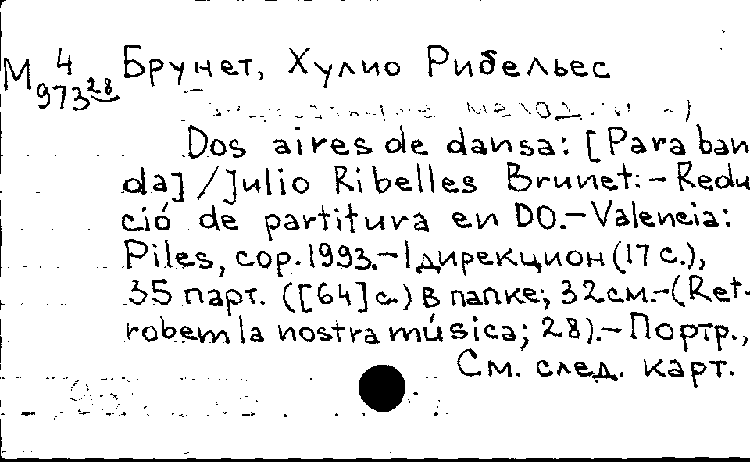 М 4 Брунет, Хулио Рибельес
973 28
Dos aires de dansa: [Para ban
da] / Julio Ribelles Brunet.- Redu
ció de partitura en DO.- Valencia:
Piles, cop. 1993.- 1 дирекцион (17 с.),
35 парт. ([64] с.) в папке; 32 см.- (Ret-
robem la nostra música; 28).- Портр.,
См. след. карт.